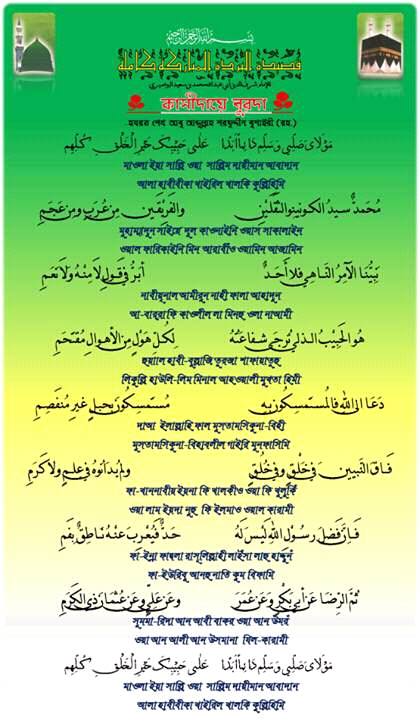 بسم الله الرحمن الرحيم
قصيدة البردة المباركة كاملة
কাসীদায়ে বুরদা
-হযরত শেখ আবু আব্দুল্লাহ শরফুদ্দীন বুশাইরী (রহ.)
مَوْلَايَ صَلِّي وَسَلِّمْ دَائِمًا أَبَدًا عَلَى حَبِيْبِكَ خَيْرِ الْخَلْقِ كُلِّهِمِ
মাওলা ইয়া সাল্লি ওয়া সাল্লিম দায়ীমান আবাদান
আলা হাবীবীকা খাইরিল খালকি কুল্লিহিমি
مُحَمَّدٌ سَيِّدُ الْكَوْنَيْنِ وَالثَّقَلَيْنِ وَالْفَرِيْقَيْنِ مِنْ عُرْبٍ وَمِنْ عَجَمٍ
মুহাম্মাদুন সাইয়্যে দুল কাওনাইনি ওয়াস সাকালাইন
ওয়াল ফারিকাইনি মিন আরাবীও ওয়ামিন আজামিন
نَبِيُّنَا الْآمِرُ النَّاهِي فَلَا أَحَدٌ أَبَرَّ فِي قَوْلِ لَا مِنْهُ وَلَا نَعَمِ
নাবীয়ুনাল আমীরুন নাহী ফালা আহাদুন
আ-বাররা ফি কাওলীল লা মিনহু ওলা নাআমী
هُوَ الْحَبِيْبُ الَّذِي تُرْجَى شَفَاعَتُهُ لِكُلِّ هَوْلٍ مِنَ الْأَهْوَالِ مُقْتَحَمِ
হুয়াল হাবী-বুল্লাজি তুরজা শাফায়াতুহু
লিকুল্লি হাউলি-লিম মিনাল আহওয়ালী মুখতা হিমী
دَعَا إِلَى اللهِ فَالْمُسْتَمْسِكُوْنَ بِهِ مُسْتَمْسِكُوْنَ بِحَبْلٍ غَيْرِ مُنْفَصِمِ
দাআ ইলাল্লাহি ফাল মুসতামসিকুনা-বিহী
মুসতামসিকুনা-বিহাবলীল গাইরি মুনফাসিমি
فَاقَ النَّبِيِّيْنَ فِي خَلْقٍ وَفِي خُلُقٍ وَلَمْ يُدَانُوْهُ فِي عِلْمٍ وَلَا كَرَمِ
ফা-খাননাবীয় ইয়না ফি খালকীও ওয়া ফি খুলুকি
ওয়া লাম ইয়দা নুহু ফি ইলমাও ওয়াল কারামী
فَإِنَّ فَضْلَ رَسُوْلِ اللهِ لَيْسَ لَهُ حَدٌّ فَيُعْرِبَ عَنْهُ نَاطِقٌ بِفَمِ
ফা-ইন্না ফাদলা রাসূলিল্লাহী লাইসা লাহু হাদ্দুন
ফা-ইউরিবু আনহু নাতি কুম বিফামি
ثُمَّ الرِّضَا عَنْ أَبِي بَكْرٍ وَعَنْ عُمَرَ وَعَنْ عَلِيٍّ وَعَنْ عُثْمَانَ ذِي الْكَرَمِ
সুমমা-রিদা আন আবী বাকর ওয়া আন উমর
ওয়া আন আলী আন উসমানা যিল-কারামী
مَوْلَايَ صَلِّي وَسَلِّمْ دَائِمًا أَبَدًا عَلَى حَبِيْبِكَ خَيْرِ الْخَلْقِ كُلِّهِمِ
মাওলা ইয়া সাল্লি ওয়া সাল্লিম দায়ীমান আবাদান
আলা হাবীবীকা খাইরিল খালকি কুল্লিহিমি